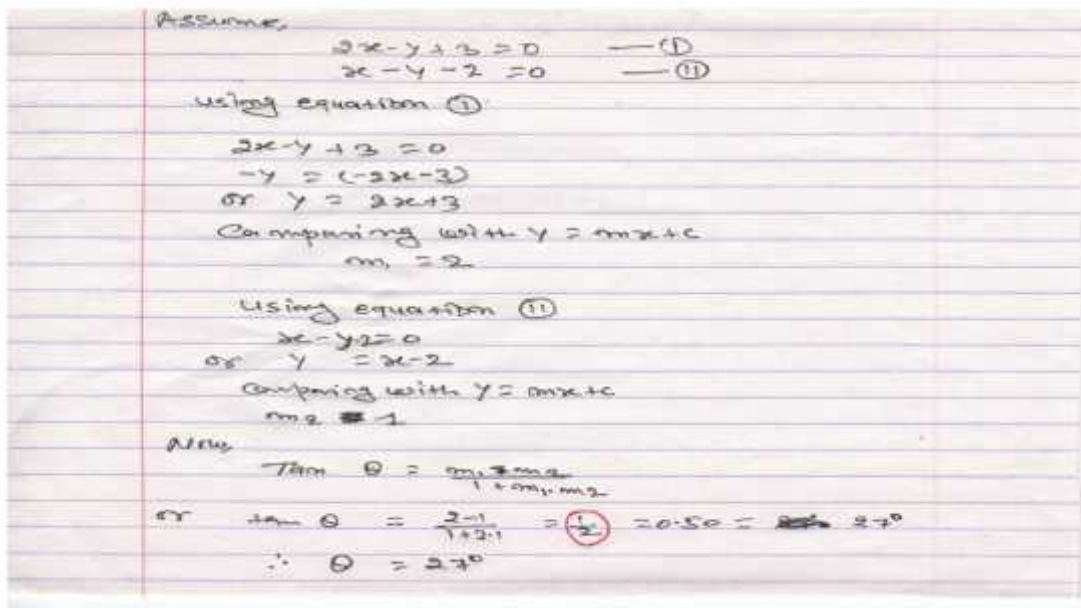 Assume,
2x - y + 3 = 0 — (I)
x - y - 2 = 0 — (II)
using equation (I)
2x - y + 3 = 0
-y = (-2x - 3)
or y = 2x + 3
Comparing with y = mx + c
m₁ = 2
using equation (II)
x - y - 2 = 0
or y = x - 2
Comparing with y = mx + c
m₂ = 1
Now
Tan θ = m₁ - m₂ / 1 + m₁.m₂
or tan θ = 2-1 / 1+2.1 = 1/2 = 0.50 = 27°
∴ θ = 27°